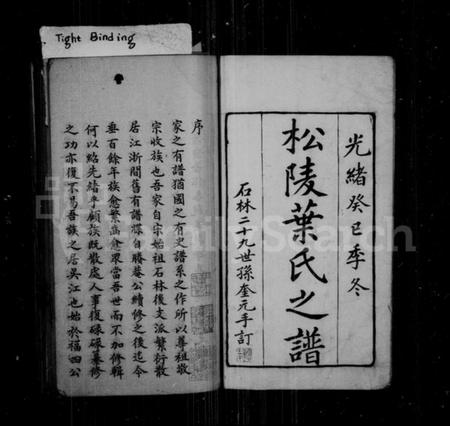 Tight Binding
光緒癸巳季冬
松陵葉氏之譜
石林二十九世孫奎元手訂
序
家之有譜猶國之有史譜系之作所以尊祖敬
宗收族也吾家自宗始祖石林後支派繁衍散
居江浙間舊有譜譔自勝菴公續修之後迄今
垂百餘年族愈繁齒愈眾當吾世而不加修輯
何以紹先緒乎顧族既散處人事復碌碌纂修
之功亦復不易吾族之居吳江也始於福四公
FamilySearch